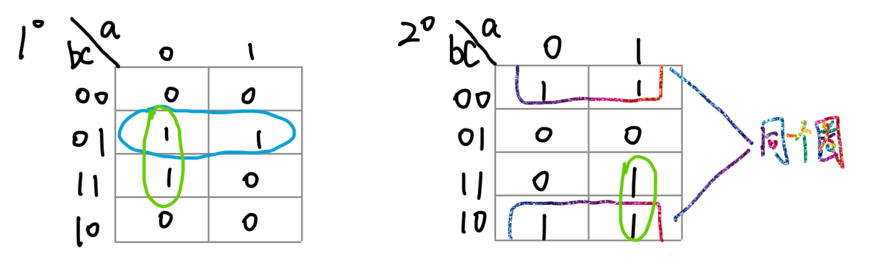 1° a
bc 0 1
00 0 0
01 1 1
11 1 0
10 0 0
2° a
bc 0 1
00 1 1
01 0 0
11 0 1
10 1 1
同个圈